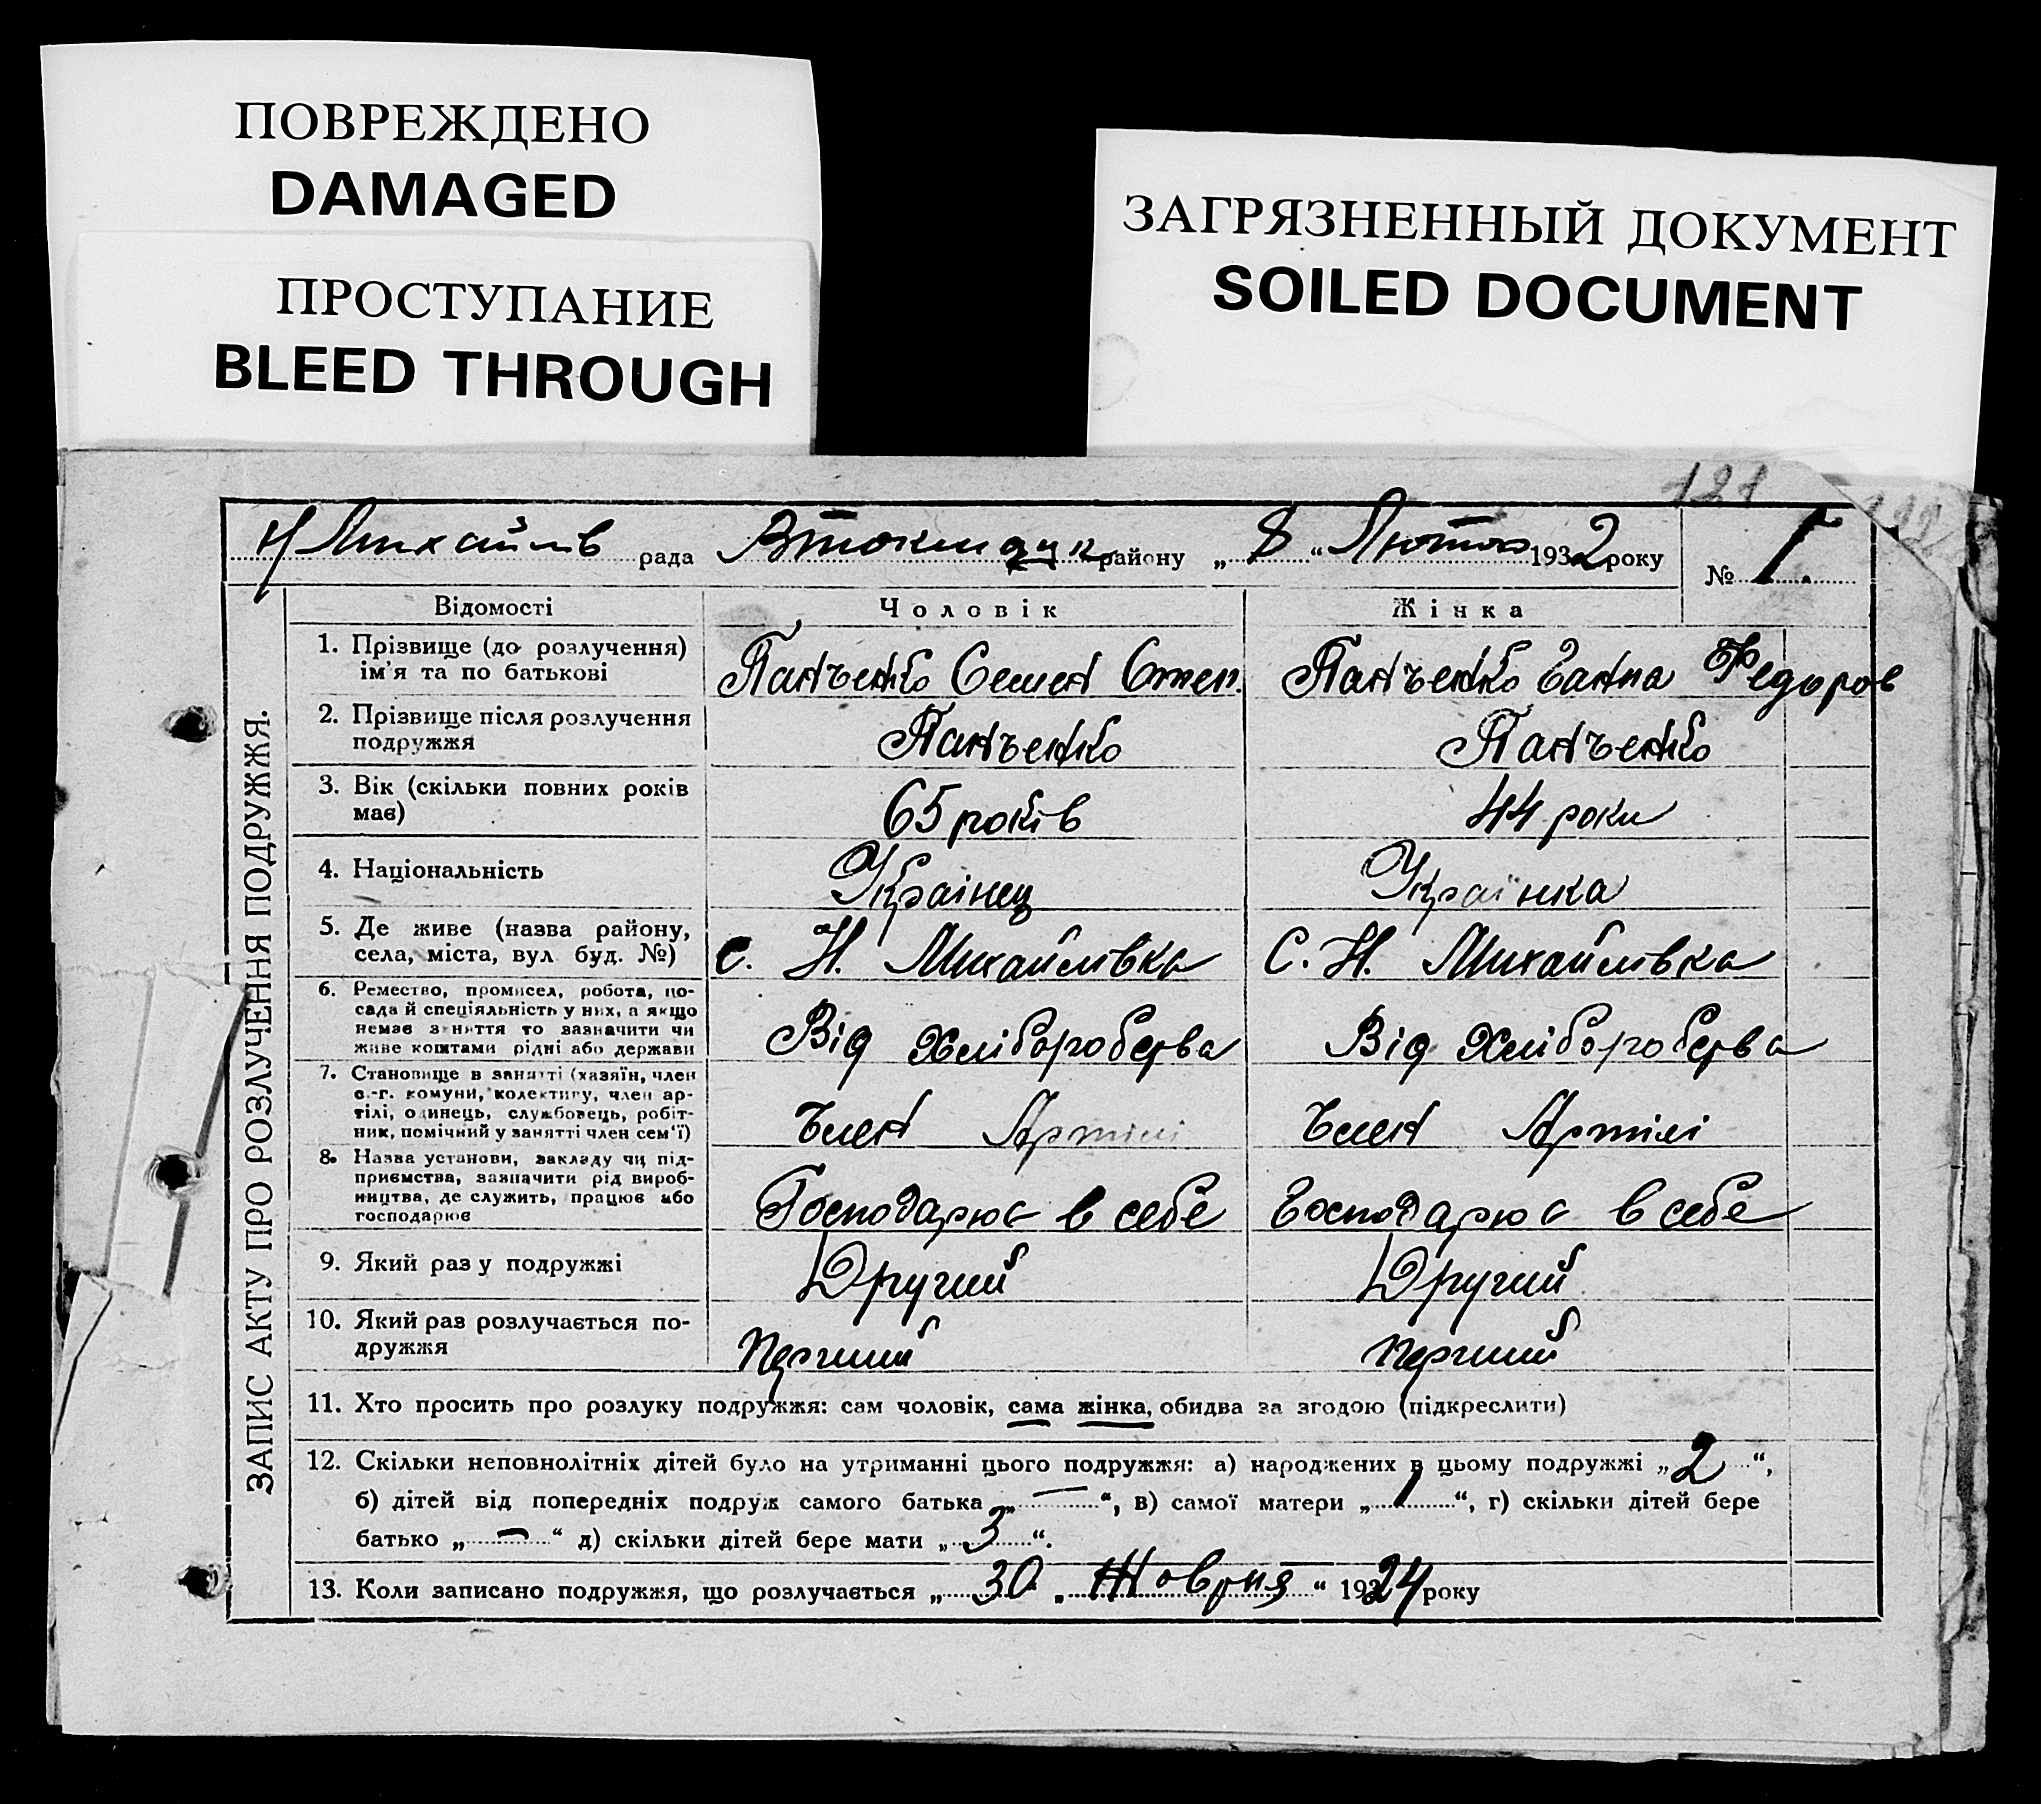 ПОВРЕЖДЕНО
DAMAGED
ПРОСТУПАНИЕ
BLEED THROUGH
ЗАГРЯЗНЕННЫЙ ДОКУМЕНТ
SOILED DOCUMENT
121
Н Михайлів рада району „ 8 “ Лютого 1932 року № 1.
ЗАПИС АКТУ ПРО РОЗЛУЧЕННЯ ПОДРУЖЖЯ.
Відомості Чоловік Жінка
1. Прізвище (до розлучення)
ім'я та по батькові
Панченко Семен Степ. Панченко Ганна Федоров
2. Прізвище після розлучення
подружжя
Панченко Панченко
3. Вік (скільки повних років
має)
65 років 44 роки
4. Національність Українец Українка
5. Де живе (назва району,
села, міста, вул буд. №)
с. Н. Михайлівка С. Н. Михайлівка
6. Ремество, промисел, робота, по-
сада й спеціяльність у них, а якщо
немає заняття то зазначити чи
живе коштами рідні або держави
Від хліборобства Від хліборобства
7. Становище в занятті (хазяїн, член
с.-г. комуни, колективу, член ар-
тілі, одинець, службовець, робіт-
ник, помічний у занятті член сем'ї)
Член Артілі Член Артілі
8. Назва установи, закладу чи під-
приємства, зазначити рід вироб-
ництва, де служить, працює або
господарює
Господарює в себе Господарює в себе
9. Який раз у подружжі Другий Другий
10. Який раз розлучається по-
дружжя
Перший Перший
11. Хто просить про розлуку подружжя: сам чоловік, сама жінка, обидва за згодою (підкреслити)
12. Скільки неповнолітніх дітей було на утриманні цього подружжя: а) народжених в цьому подружжі „ 2 “,
б) дітей від попередніх подруж самого батька „ — “, в) самої матери „ 1 “, г) скільки дітей бере
батько „ — “ д) скільки дітей бере мати „ 3 “.
13. Коли записано подружжя, що розлучається „ 30 „ Жовтня “ 1924 року